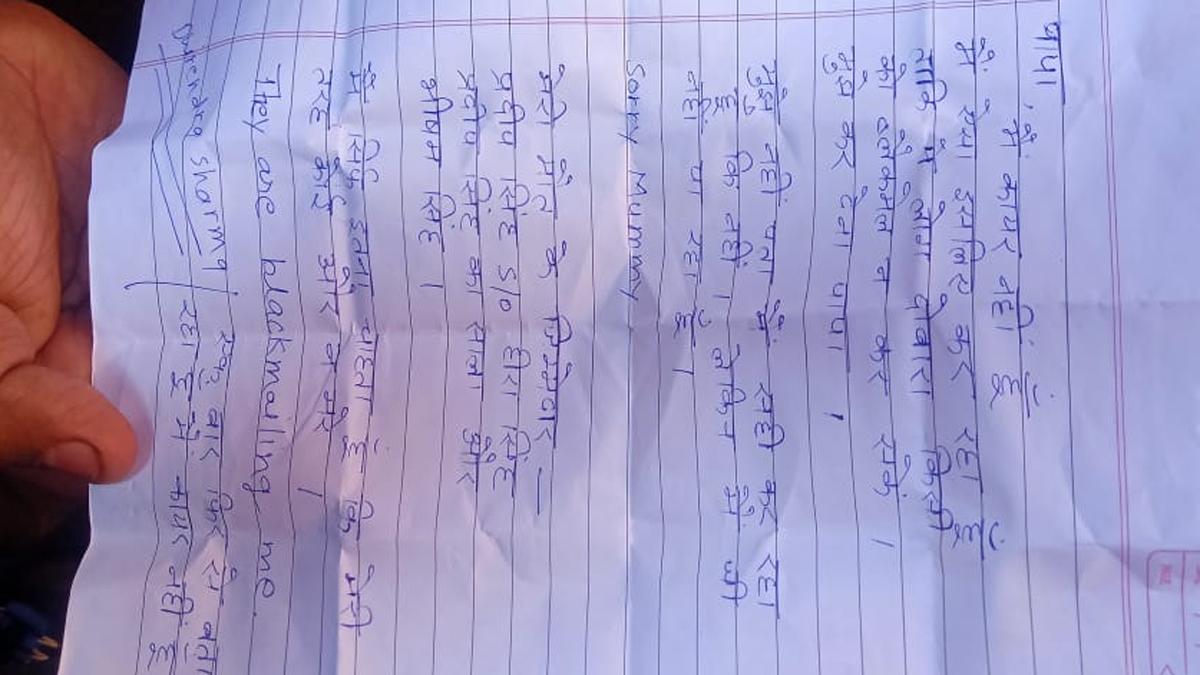 पापा, मैं कायर नहीं हूँ
मैं ऐसा इसलिए कर रहा हूँ
ताकि ये लोग दोबारा किसी
को ब्लैकमेल न कर सकें ।
मुझे माफ़ कर देना पापा ।
मुझे नहीं पता मैं सही कर रहा
हूँ कि नहीं । लेकिन मैं जी
नहीं पा रहा हूँ ।
Sorry Mummy
मेरी मौत के जिम्मेवार —
प्रदीप सिंह S/o हीरा सिंह
प्रदीप सिंह का साला और
भीषम सिंह ।
मैं सिर्फ इतना चाहता हूँ कि मेरी
तरह कोई और न मरे ।
They are blackmailing me.
एक बार फिर से बता
रहा हूँ मैं कायर नहीं हूँ
Sharma